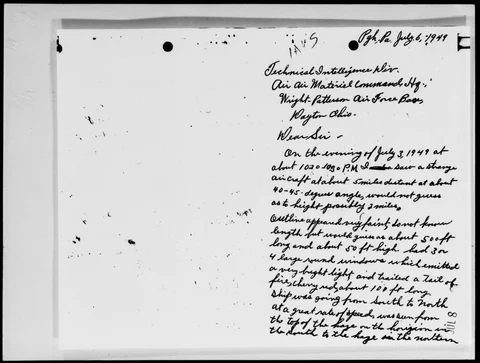 Pgh, Pa. July 6, 1949
Technical Intelligence Div.
Air Air Materiel Command, Hq.,
Wright-Patterson Air Force Base,
Dayton Ohio.
Dear Sir -
On the evening of July 3, 1949 at
about 1020-1030 P.M. I saw a strange
aircraft at about 5 miles distant at about
40-45 degree angle, would not guess
as to height possibly 2 miles.
Outline appeared very faint, do not know
length but would guess as about 500 ft
long and about 50 ft high. had 3 or
4 large round windows which emitted
a very bright light and trailed a tail of
fire, cherry red, about 100 ft long.
Ship was going from South to North
at a great rate of speed, was seen from
the top of the haze on the horizon in
the South to the haze in the northern